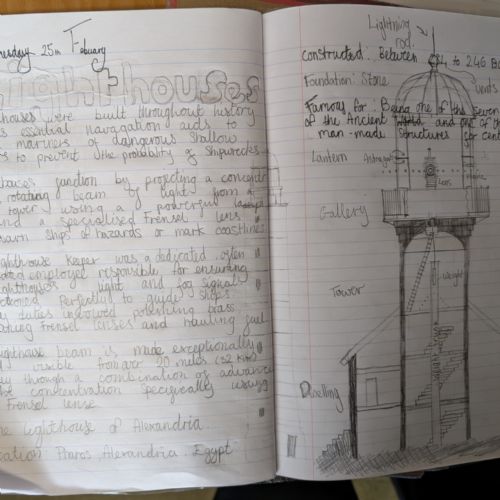 25th Febuary
lighthouses
houses were built throughout history
essential navagation aids to
mariners of dangerous shallow
to prevent the probability of shipwrecks
function by projecting a
rotating beam of light from a
tower, using a powerful
and a specialised Frensel lens
warn ships of hazards or mark coastlines
keeper was a dedicated, often
employed responsible for ensuring
light and fog signal
perfectly to guide ships.
duties involved polishing brass
Frensel lenses and hauling fuel
beam is made exceptionally
visible from over 20 miles
through a combination of advance
concentration specifically using
Frensel lense
The Lighthouse of Alexandria
Pharos, Alexandria, Egypt
Lightning
rod
Constructed: Between to 246
Foundation: Stone
vents
Famous for: Being one of the Seven
of the Ancient World and one of
man-made structures for
Lantern
Lens
Gallery
Weight
Tower
Dwelling